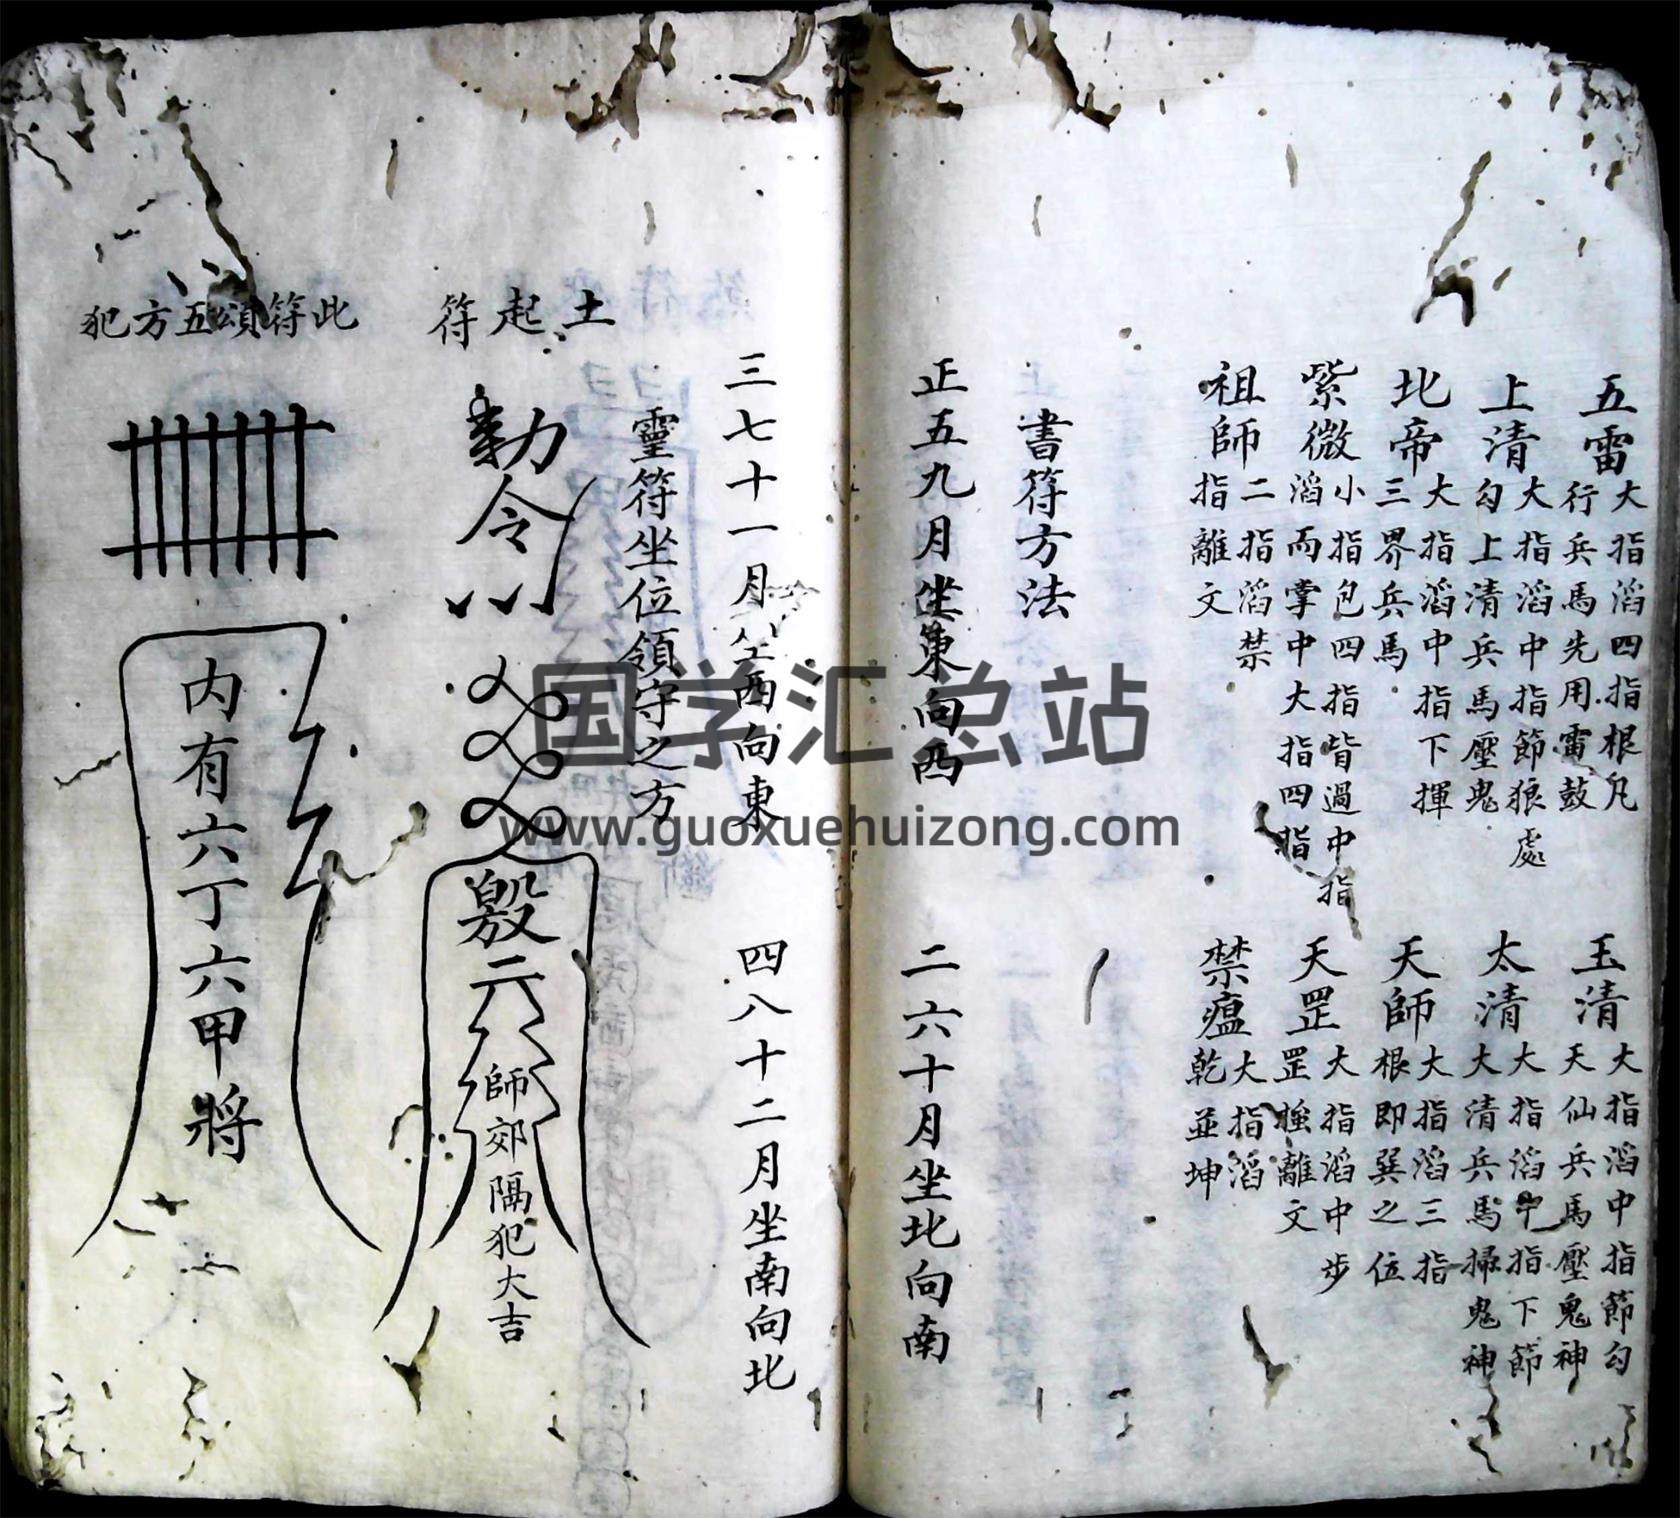 五雷 大指滔四指根凡
行兵馬先用雷鼓
玉清 大指滔中指節勾
天仙兵馬壓鬼神
上清 大指滔中指節狼處
勾上清兵馬壓鬼
太清 大指滔中指下節
大清兵馬掃鬼神
北帝 大指滔中指下揮
三界兵馬
天師 大指滔三指
根即巽之位
紫微 小指包四指皆過中指
滔而掌中大指四指
天罡 大指滔中步
罡離文
祖師 二指滔禁
指離文
禁瘟 大指滔
乾並坤
書符方法
正五九月坐東向西
二六十月坐北向南
三七十一月坐西向東
四八十二月坐南向北
靈符坐位領守之方
土起符
勅令
六
師郊隔犯大吉
此符頌五方犯
内有六丁六甲將
国学汇总站
www.guoxuehuizong.com